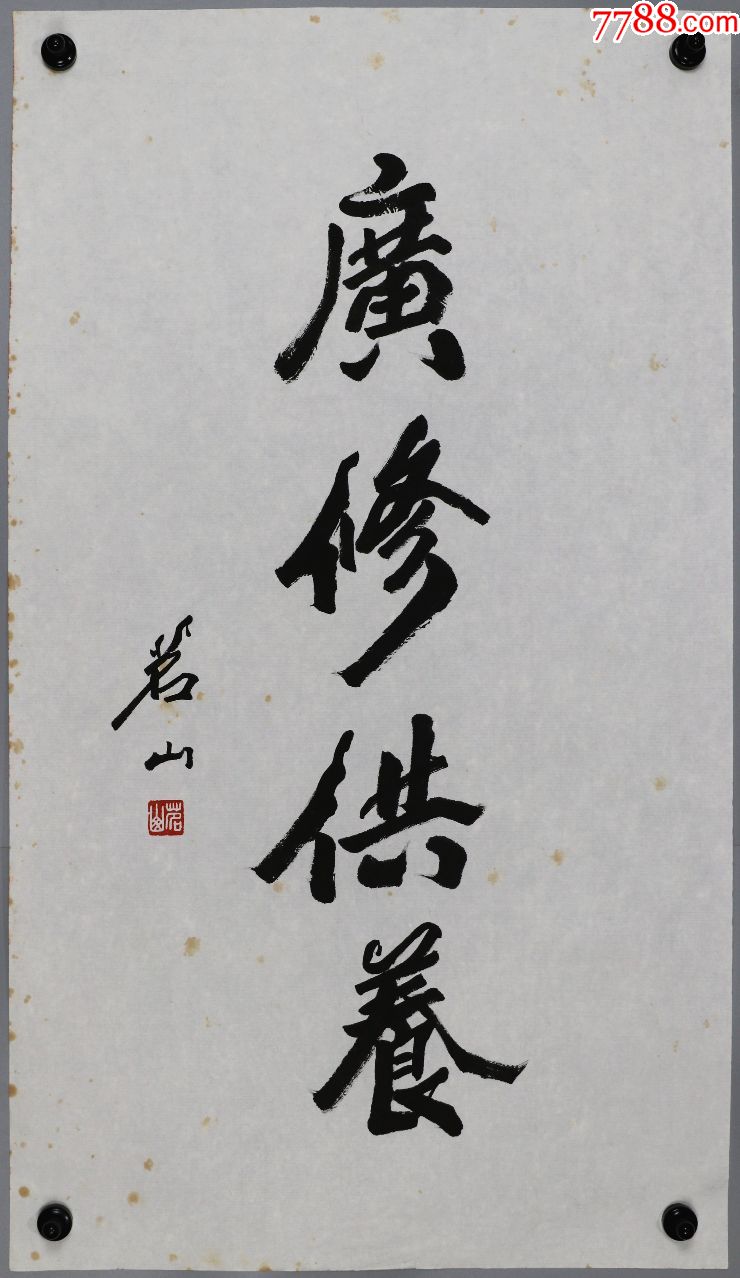 7788.com
廣修供養
茗山
茗山